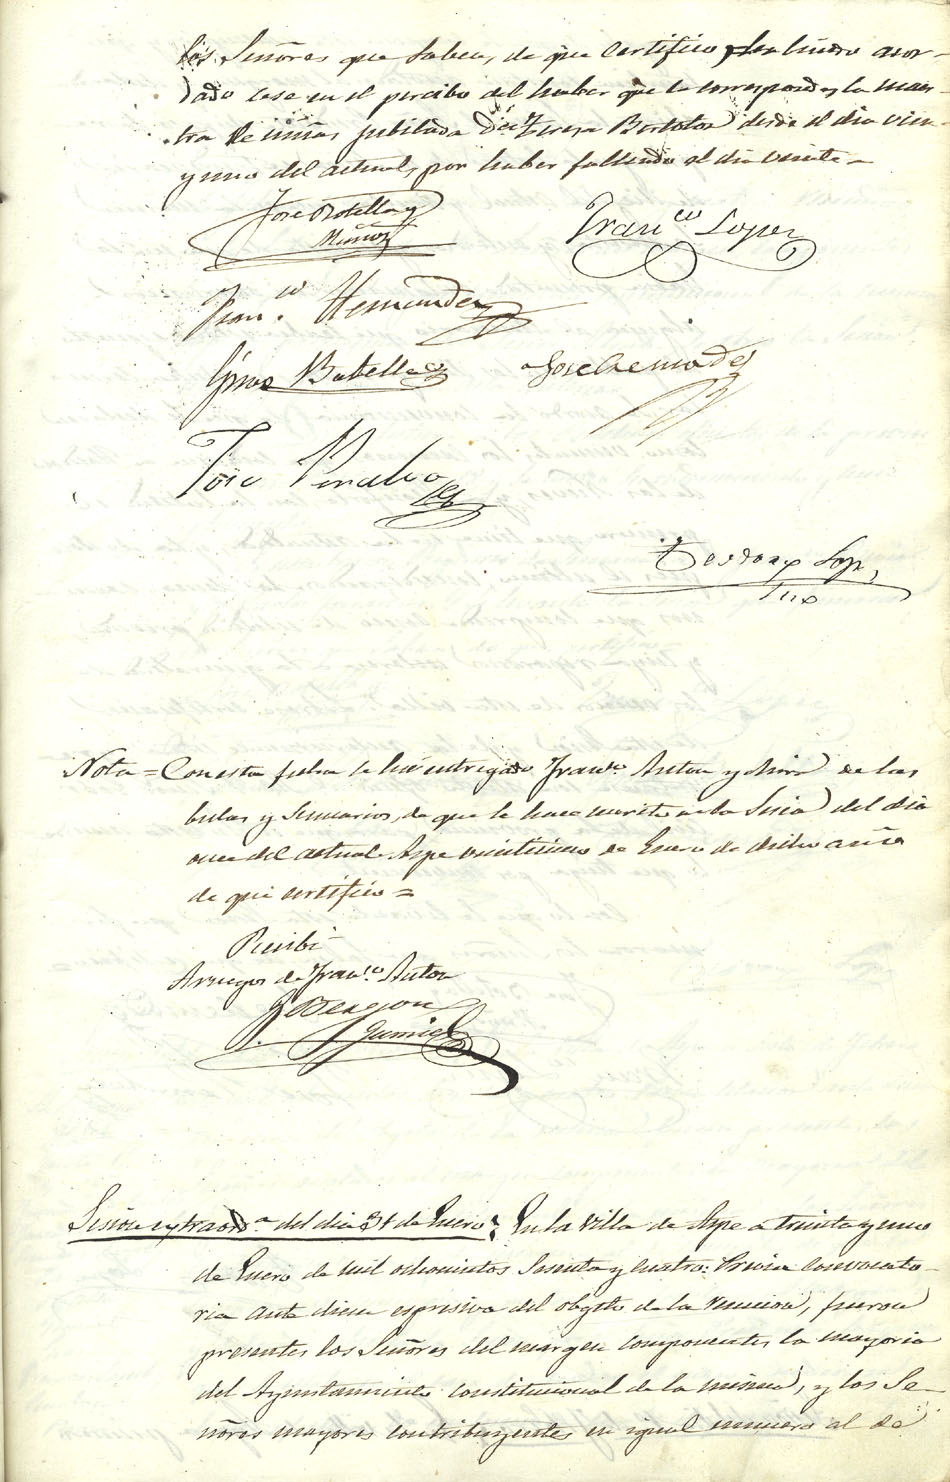 los Señores que saben, de que certifico, y ha biendo acor-
dado cese en el percibo del haber que le corresponde, la maes-
tra de niñas jubilada D.ª Teresa Bertolos desde el dia vein-
y uno del actual, por haber fallecido el dia veinte =
Jose Botella y
Muñoz
Fran.co Lopez
Fran.co Hernandez
Gines Botella
Jose Cremades
Jose Penalva
Teodoro Lop,
Srio
Nota = Con esta fecha se há entregado Fran.co Anton y Mira de las
bulas y Sumarios, de que se hace merito en la Sesion del dia
once del actual. Aspe veintiuno de Enero de dicho año
de que certifico =
Recibi
A ruegos de Fran.co Anton
Sesion extraord.ª del dia 31 de Enero. En la Villa de Aspe a treinta y uno
de Enero de mil ochocientos Sesenta y cuatro: Previa convocato-
ria ante diem espresiva del objeto de la reunion, fueron
presentes los Señores del margen componentes la mayoria
del Ayuntamiento constitucional de la misma, y los Se-
ñores mayores contribuyentes en igual numero al de